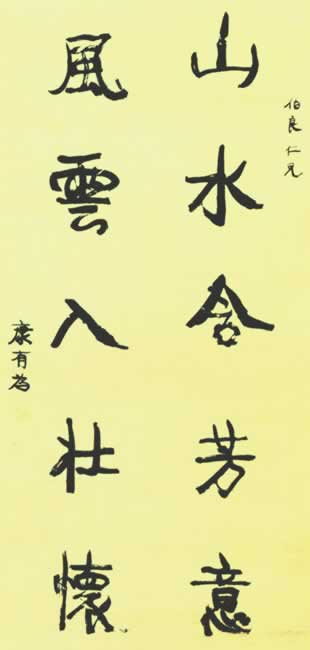 伯良仁兄
山水含芳意
風雲入壯懷
康有為